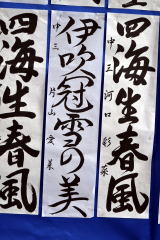 四海生春風
中三 河口 彩菜
伊吹冠雪の美
中三 片山 愛美
四海生春風